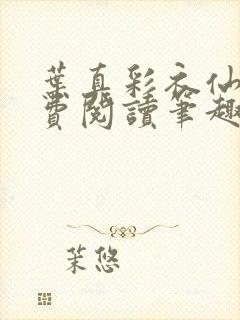 葉真彩衣仙
費閱讀筆趣
茉悠